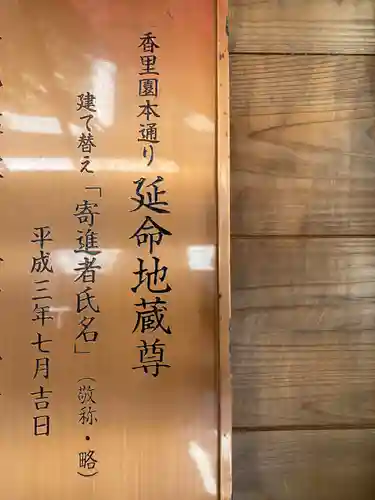 香里園本通り
延命地蔵尊
建て替え「寄進者氏名」(敬称・略)
平成三年七月吉日